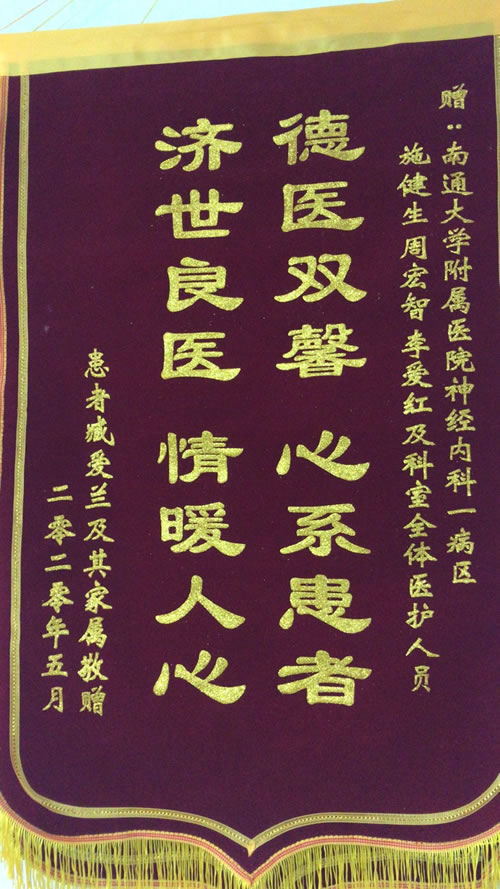 赠：南通大学附属医院神经内科一病区
施健生周宏智李爱红及科室全体医护人员
德医双馨 心系患者
济世良医 情暖人心
患者臧爱兰及其家属敬赠
二零二零年五月